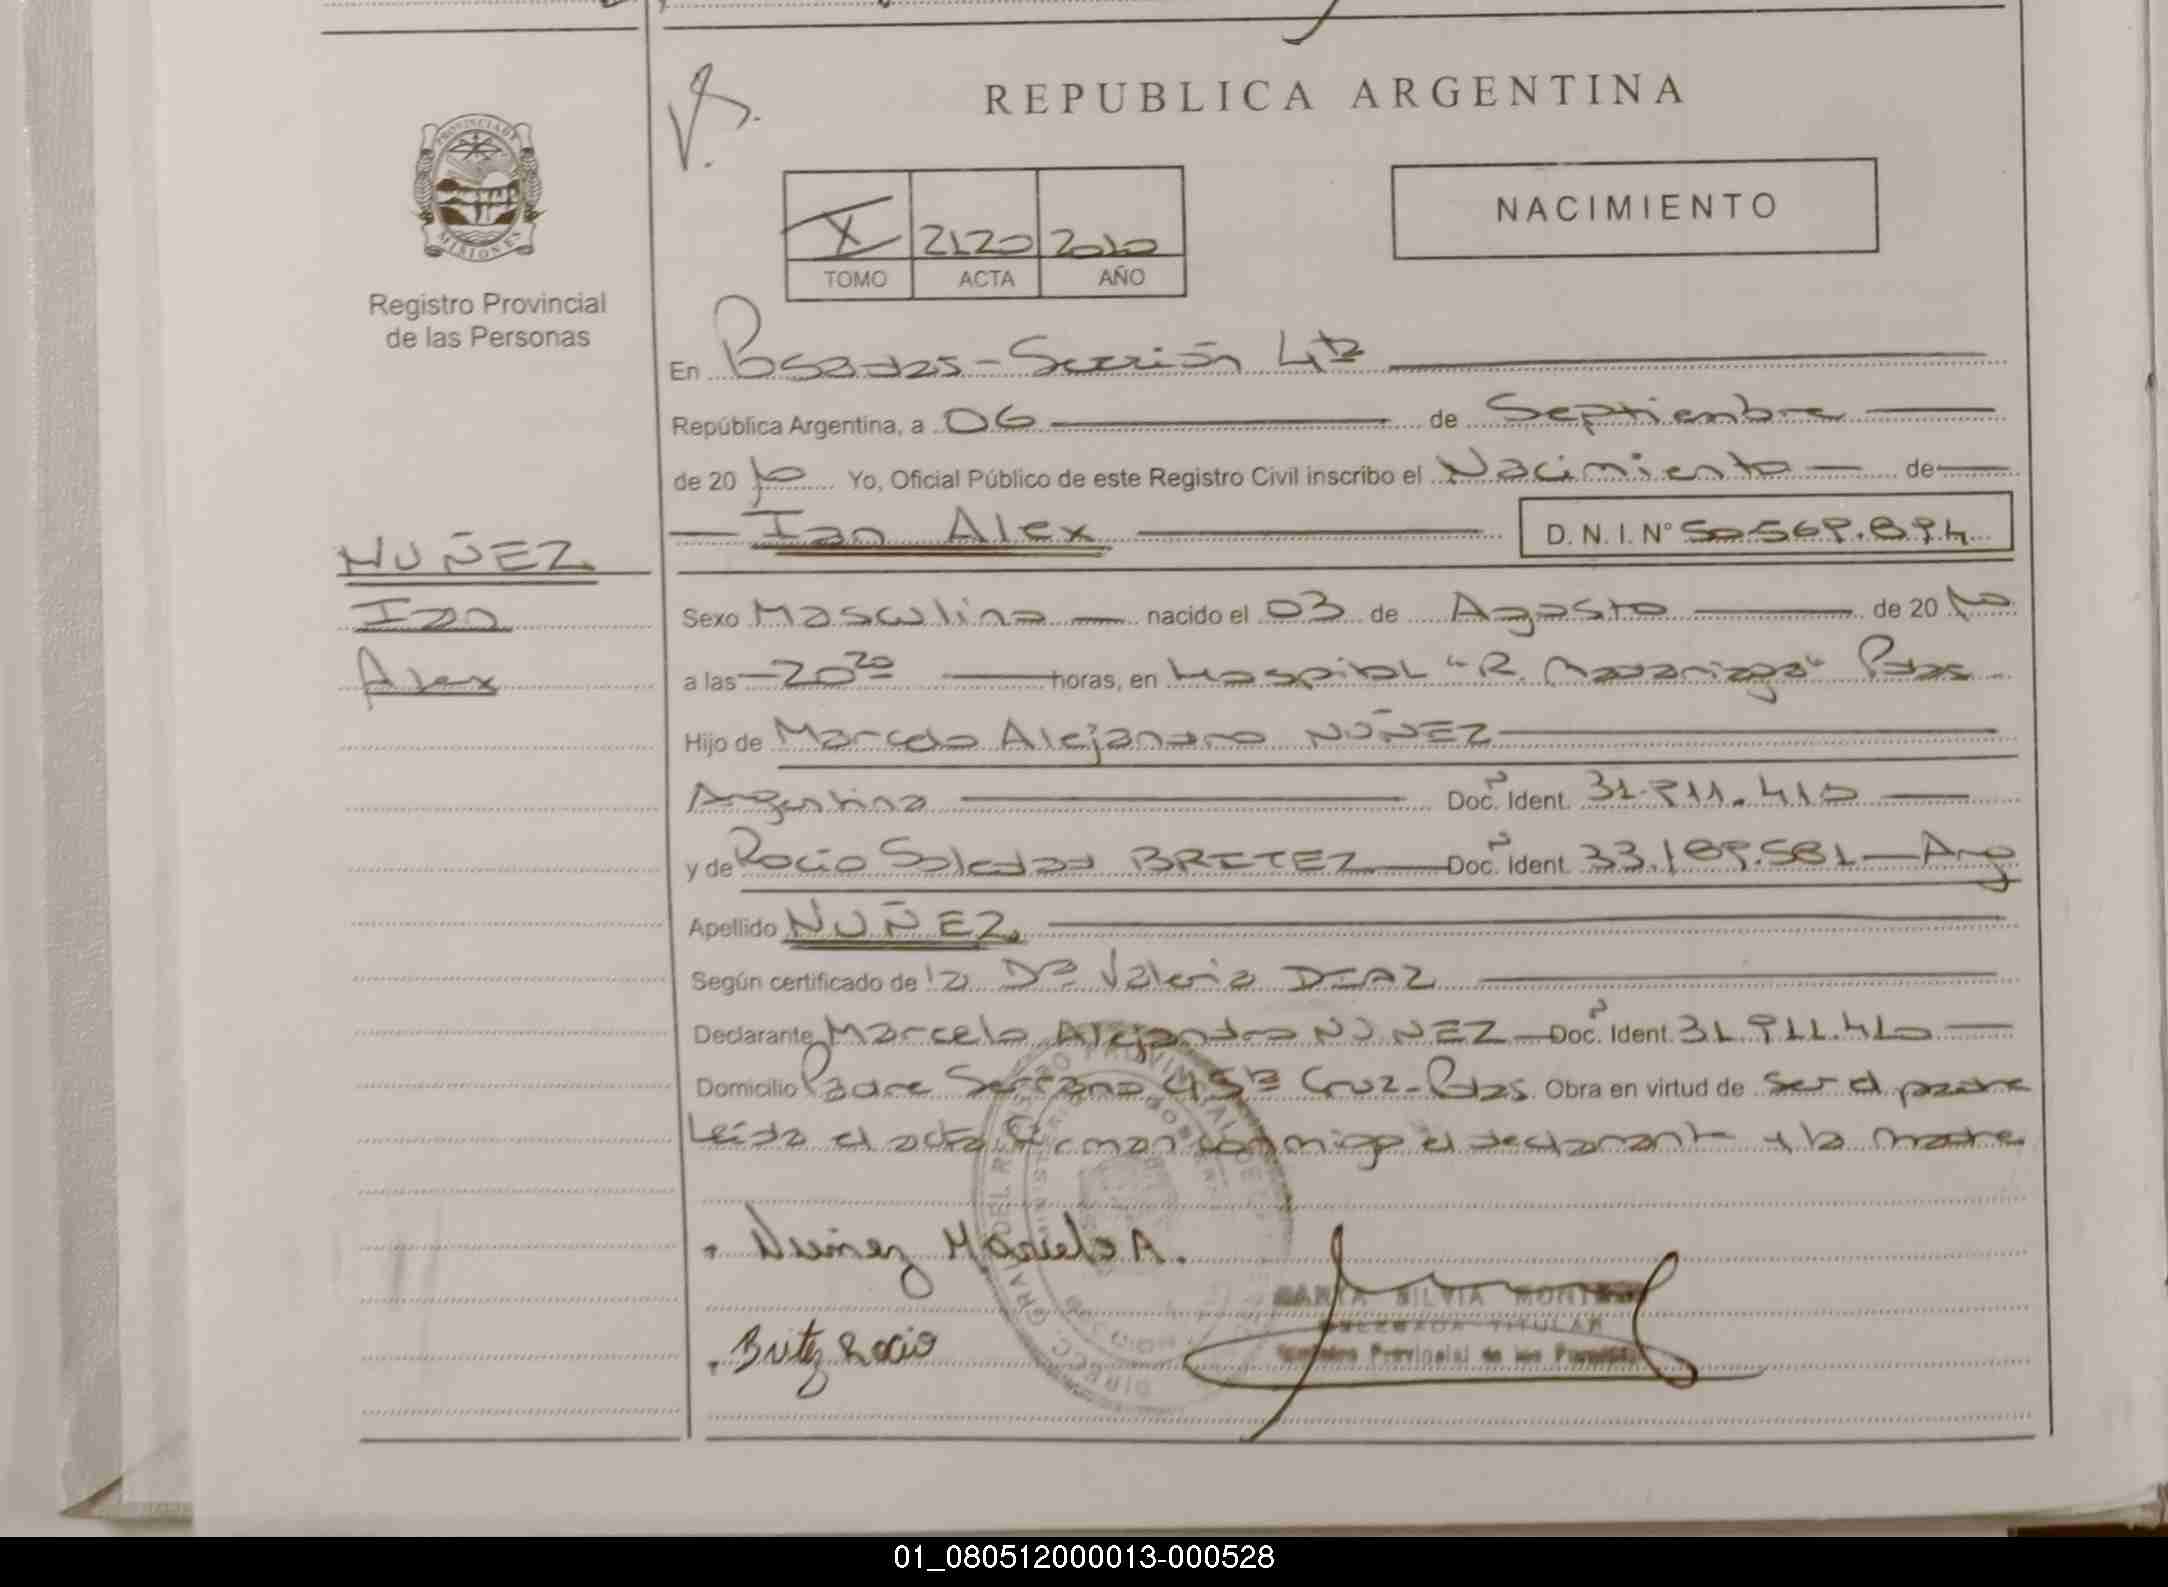 REPUBLICA ARGENTINA
V.B.
PROVINCIA DE
MISIONES
Registro Provincial
de las Personas
X 2120 2010
TOMO ACTA AÑO
NACIMIENTO
En Posadas - Sección 4ta
República Argentina, a 06 de Septiembre
de 20 10 Yo, Oficial Público de este Registro Civil inscribo el Nacimiento de
Ian Alex D. N. I. N° 50.569.894
NUÑEZ
Ian
Alex
Sexo Masculino nacido el 03 de Agosto de 20 10
a las 20 20 horas, en Hospital "R. Madariaga" Pdas
Hijo de Marcelo Alejandro NUÑEZ
Argentino Doc. Ident. 31.911.410
y de Rocio Soledad BRITEZ Doc. Ident. 33.189.581 - Arg
Apellido NUÑEZ
Según certificado de la Dra Valeria DIAZ
Declarante Marcelo Alejandro NUÑEZ Doc. Ident. 31.911.410
Domicilio Padre Serrano y Sta Cruz - Pdas. Obra en virtud de ser el padre
Leída el acta firman conmigo el declarante y la madre
Nuñez Marcelo A.
Britez Rocio
SILVIA
TITULAR
Registro Provincial de las Personas
01_080512000013-000528